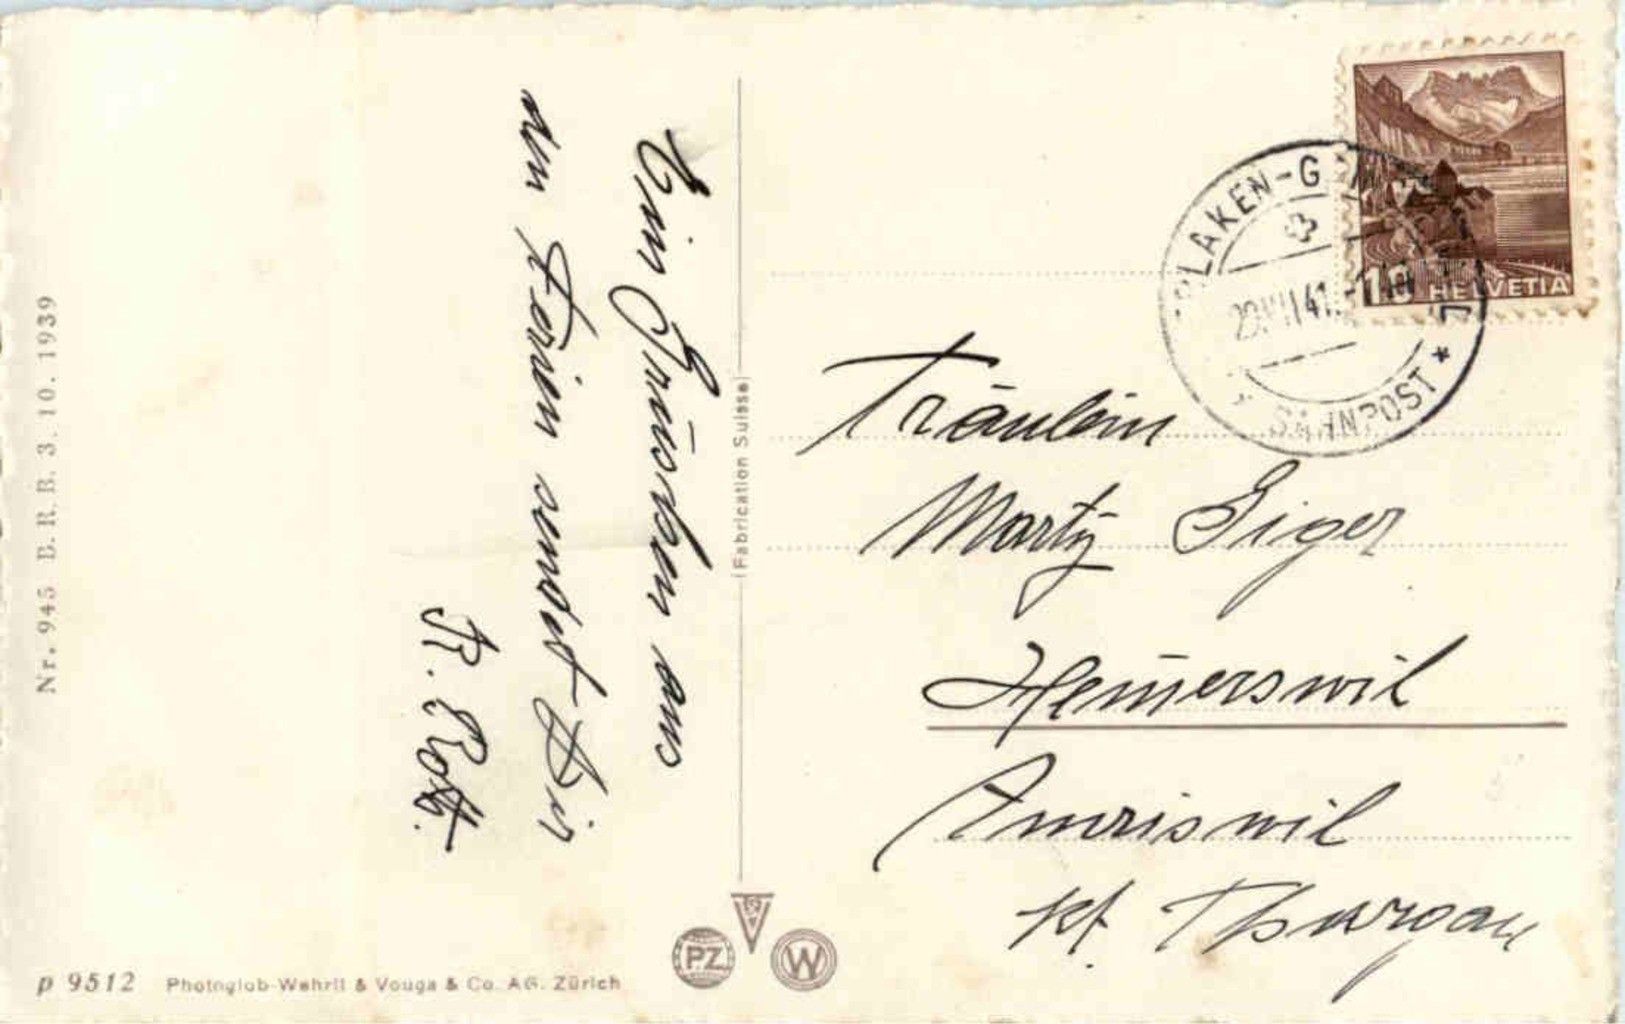 Ein Grüschen aus
den Ferien sendet Dir
R. Roth.
(Fabrication Suisse)
Nr. 945 B.R.B. 3. 10. 1939
p 9512 Photoglob-Wehrli & Vouga & Co. AG. Zürich
PZ
W
HELVETIA
10
LAKEN-G
29.VII.41.
BAHNPOST
Fräulein
Marty Giger
Hemerswil
Amriswil
Kt. Thurgau